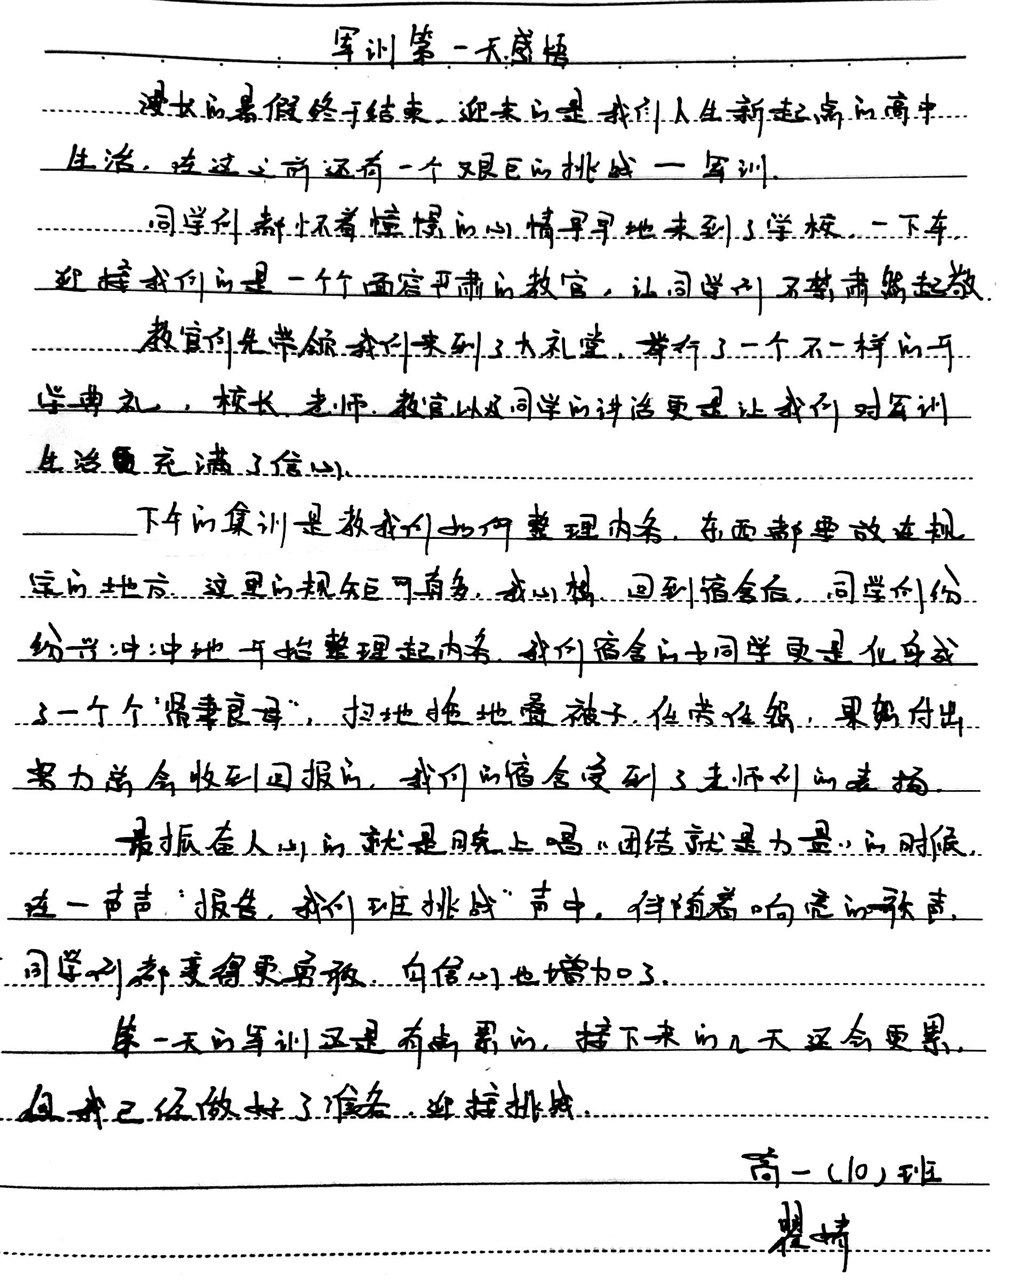 军训第一天感悟
漫长的暑假终于结束，迎来的是我们人生新起点的高中
生活，在这之前还有一个艰巨的挑战—军训.
同学们都怀着憧憬的心情早早地来到了学校，一下车，
迎接我们的是一个个面容严肃的教官，让同学们不禁肃然起敬.
教官们先带领我们来到了大礼堂，举行了一个不一样的开
学典礼，校长、老师、教官以及同学的讲话更是让我们对军训
生活更充满了信心.
下午的集训是教我们如何整理内务，东西都要放在规
定的地方，这里的规矩可真多，我心想，回到宿舍后，同学们纷
纷兴冲冲地开始整理起内务，我们宿舍的女同学更是化身成
了一个个“贤妻良母”，扫地拖地叠被子，任劳任怨，果然付出
努力总会收到回报的，我们的宿舍受到了老师们的表扬.
最振奋人心的就是晚上唱“团结就是力量”的时候，
在一声声“报告，我们班挑战”声中，伴随着响亮的歌声，
同学们都变得更勇敢，自信心也增加了.
第一天的军训还是有点累的，接下来的几天还会更累，
但我已经做好了准备，迎接挑战.
高一(10)班
瞿婧